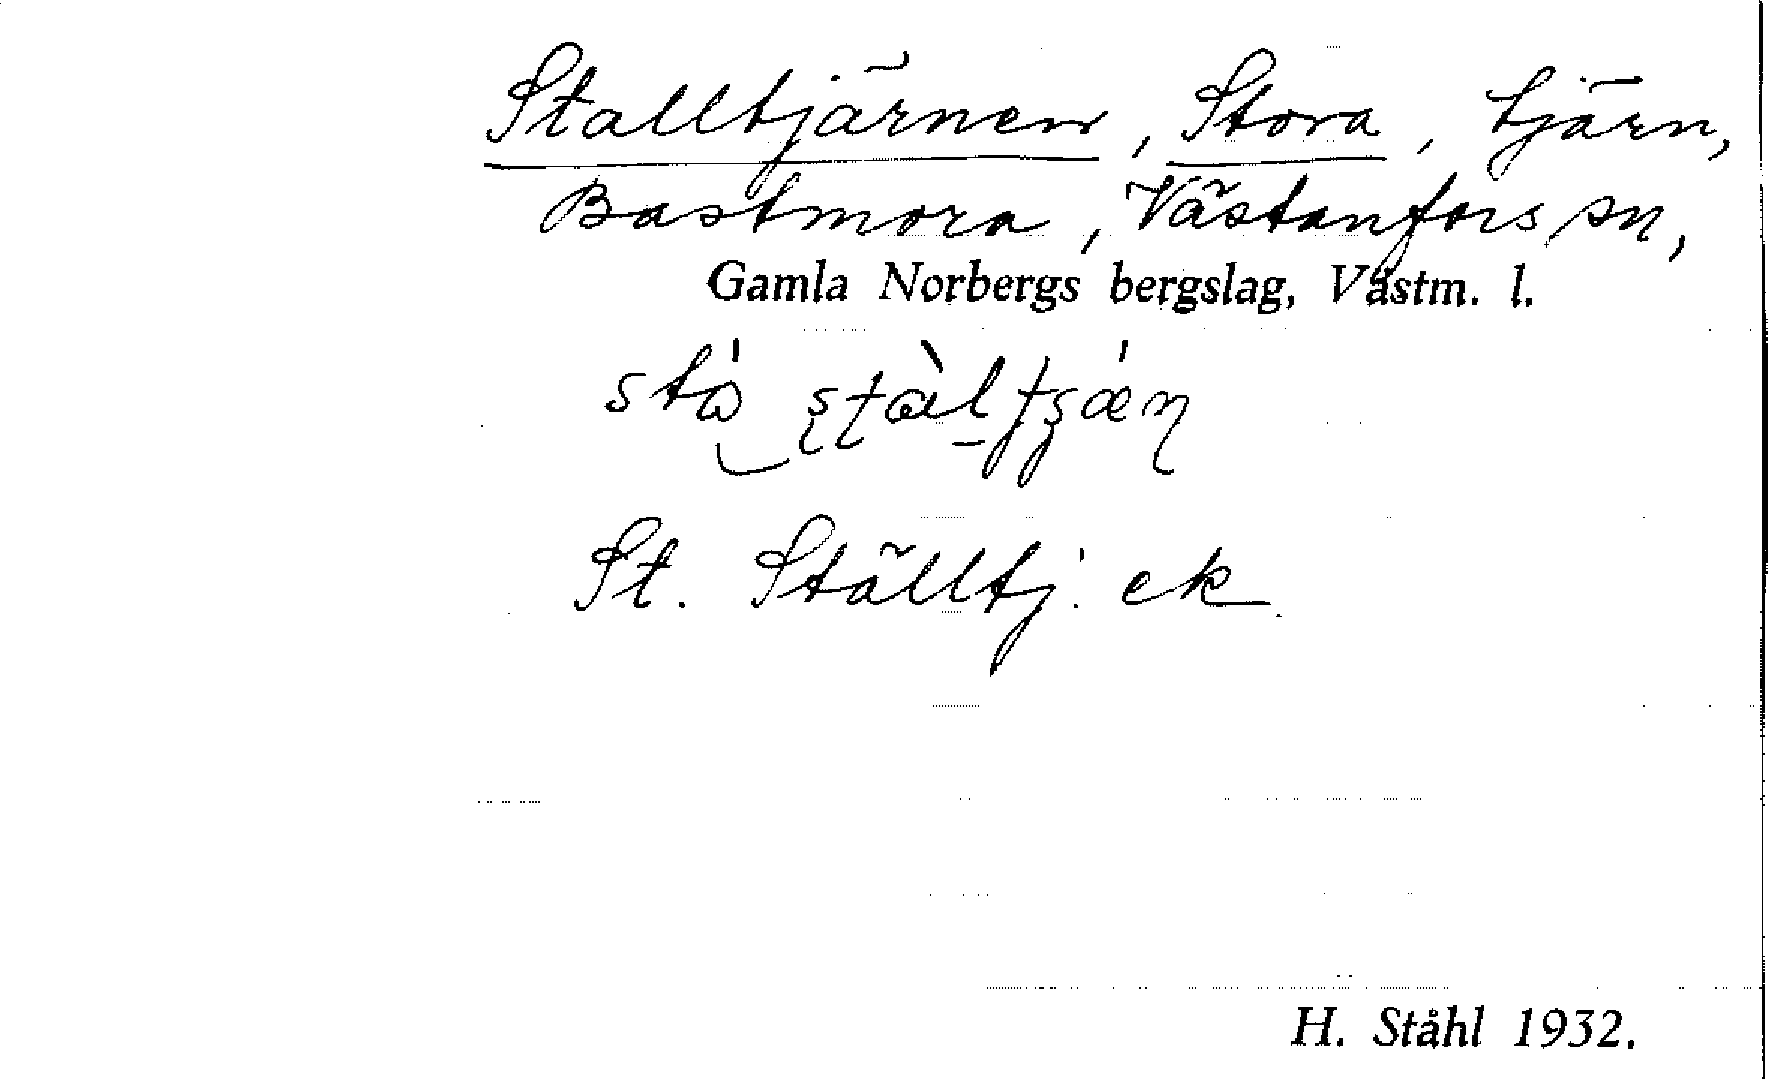 Stalltjärnen, Stora, tjärn,
Bastmora, Västanfors sn,
Gamla Norbergs bergslag, Västm. l.
St. Ställtj. ek.
H. Ståhl 1932.